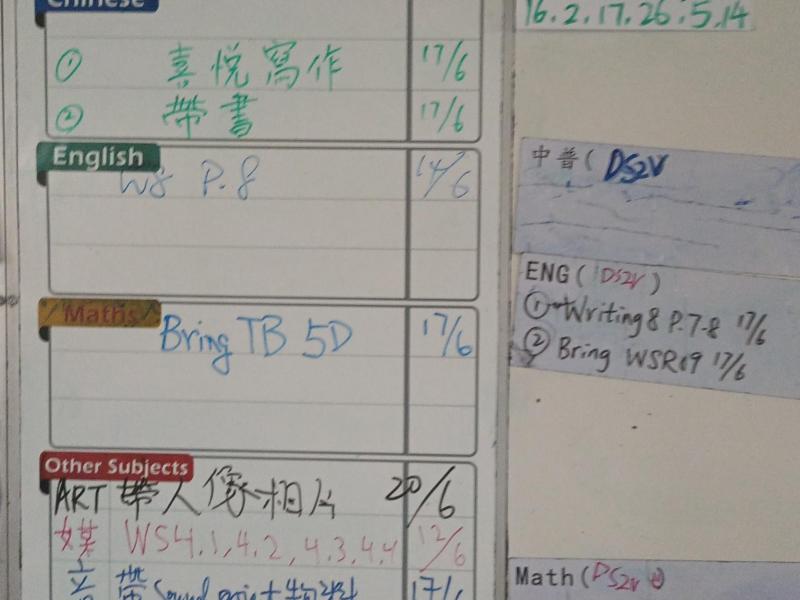 Chinese
① 喜悅寫作 17/6
② 帶書 17/6
English
W8 P.8 14/6
Maths
Bring TB 5D 17/6
Other Subjects
ART 帶人像相片 20/6
媒 WS4.1,4.2,4.3,4.4 12/6
音 帶 Sound 17/6
16.2.17.26.5.14
中普( DS2V
ENG( DS2V )
① Writing 8 P.7-8 17/6
② Bring WSR 17/6
Math( DS2V